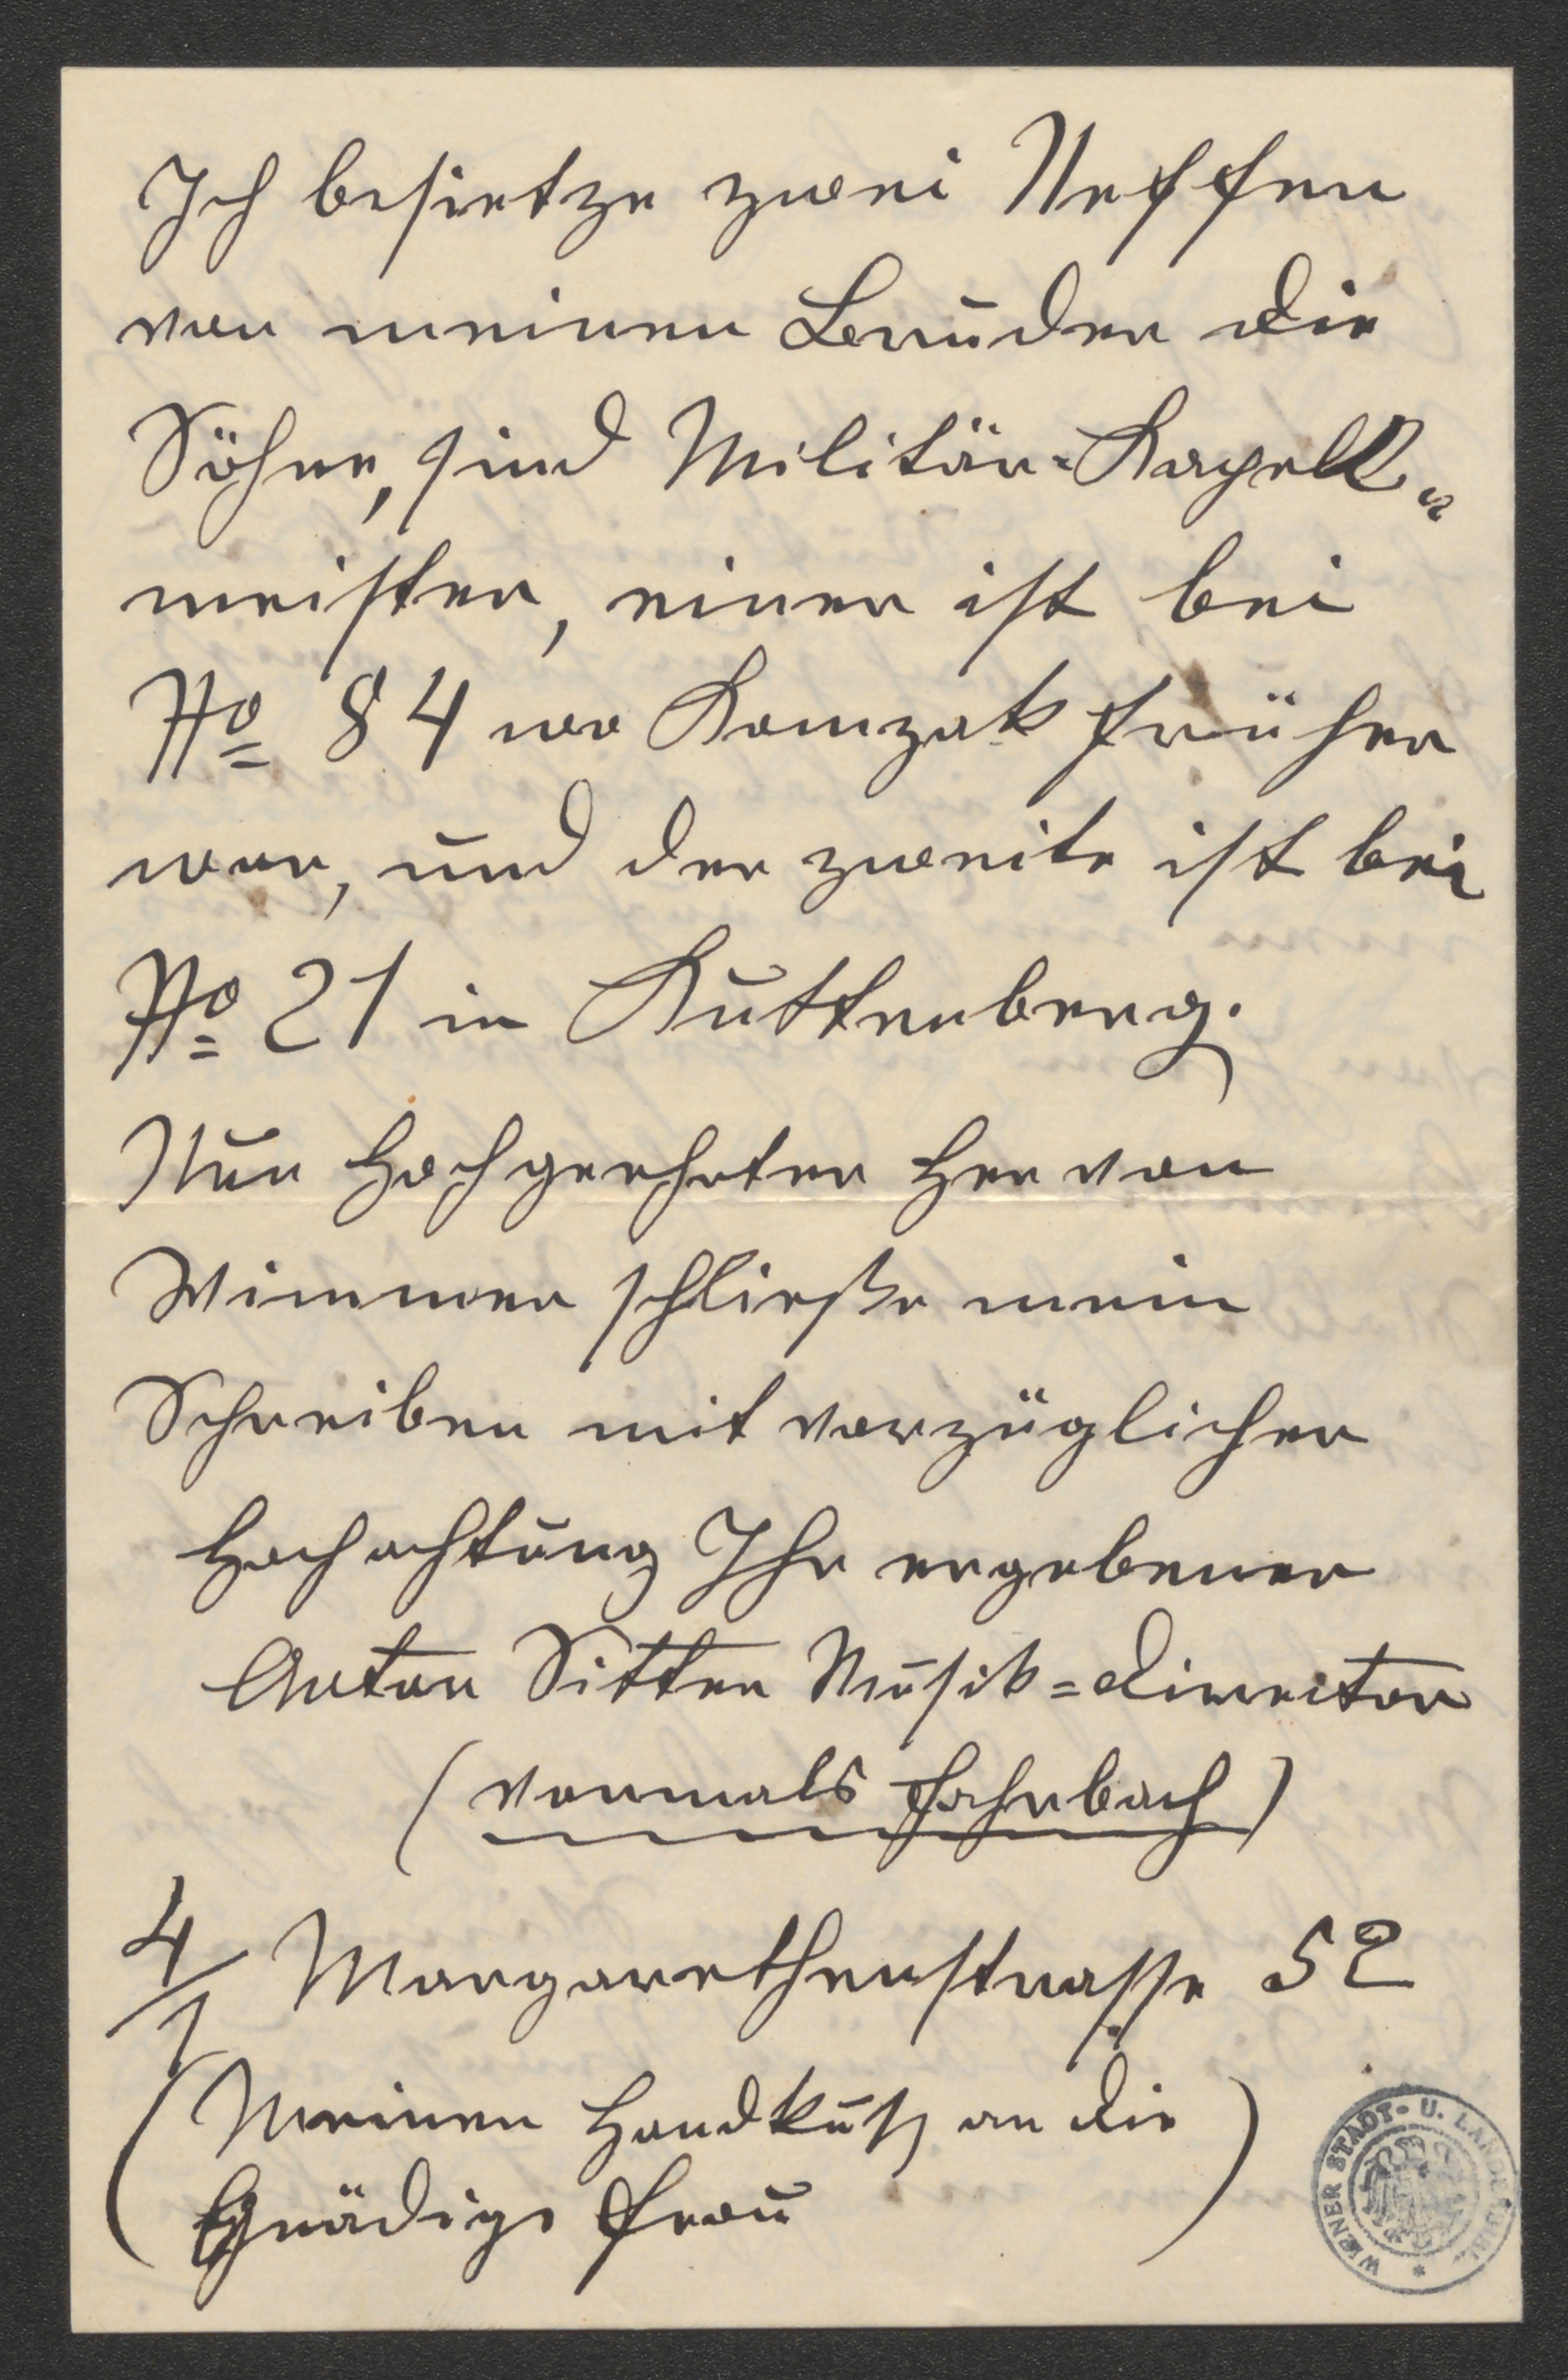 Ich besietze zwei Neffen
von meinen Bruder die
Söhne, sind Militär-Kapell„
meister, einer ist bei
No 84 wo Komzak früher
war, und der zweite ist bei
No 21 in Kuttenberg.
Nun Hochgeehrter Her von
Wimmer schließe mein
Schreiben mit vorzüglicher
Hochachtung Ihr ergebener
Anton Sitter Musik=Director
(vormals Fahrbach)
4/1 Margarethenstrasse 52
(Meinen Handkuß an die
Gnädige Frau)
WIENER STADT- U. LANDESBIBL.